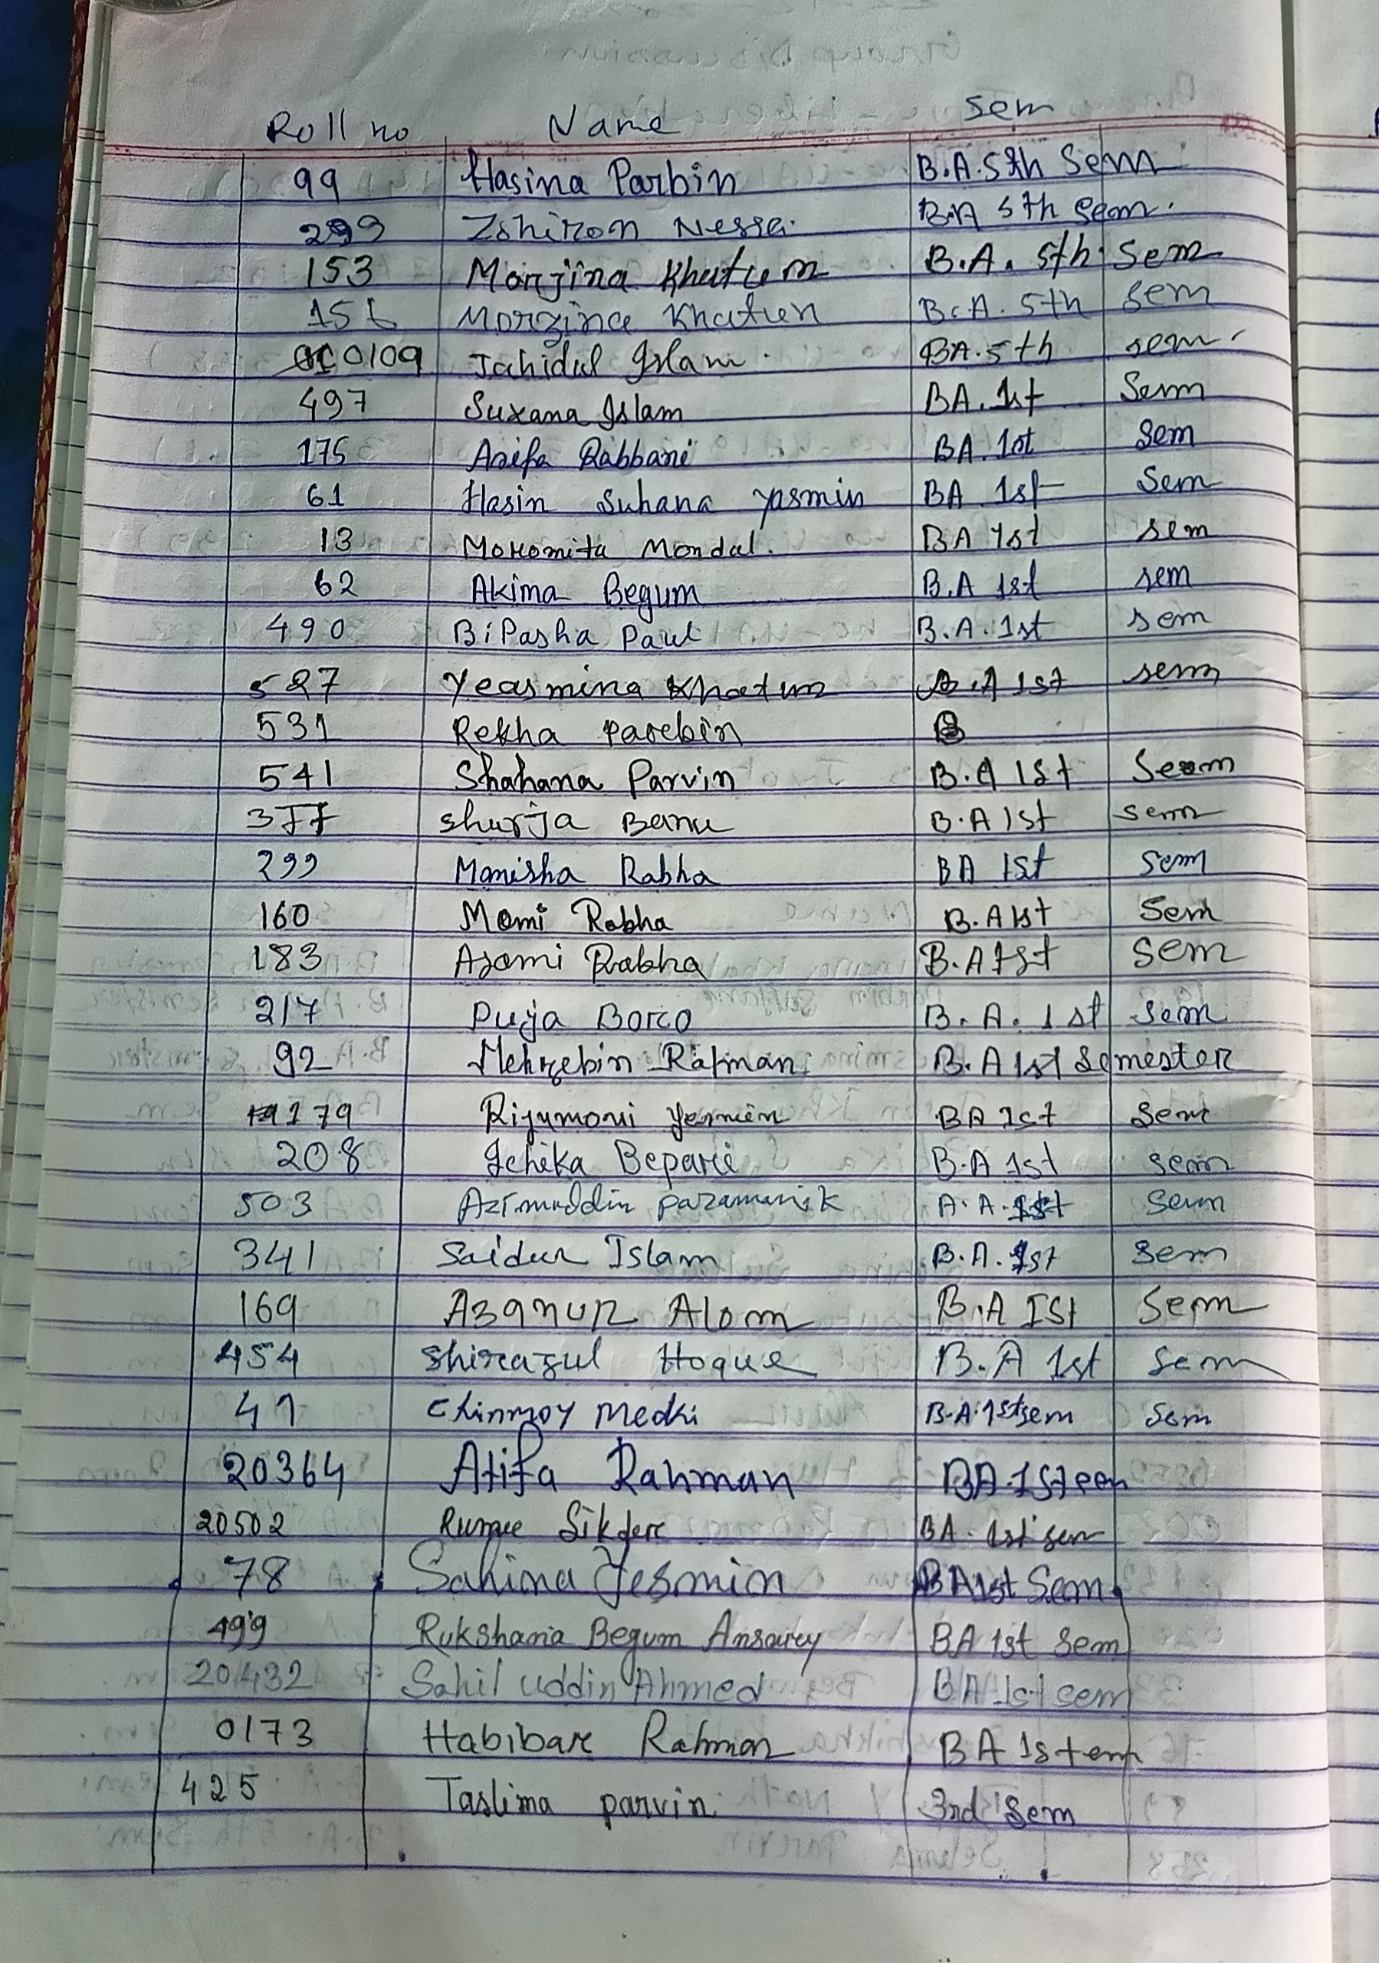 Roll no Name Sem
99 Hasina Parbin B.A. 5th Sem
299 Zohiron Nessa. B.A 5th Sem.
153 Monjina Khatum B.A. 5th Sem
156 Morzina Khatun B.A. 5th Sem
0109 Jahidul Islam. BA. 5th sem
497 Suxana Islam BA. 1st Sem
175 Arifa Rabbani BA. 1st Sem
61 Hasin Suhana yasmin BA 1st Sem
13 Moromita Mondal. BA 1st sem
62 Akima Begum B.A 1st sem
490 BiPasha Paul B.A. 1st sem
527 Yeasmina Khatun B.A 1st sem
531 Rekha Parebin B
541 Shahana Parvin B.A 1st Seem
377 Shurja Banu B.A 1st sem
299 Manisha Rabha BA 1st sem
160 Momi Rabha B.A 1st Sem
183 Asomi Rabha B.A 1st Sem
217 Puja Boro B. A. 1st Sem
92 Mehzebin Rahman B.A 1st Semester
179 Rijumoni Yesmin BA 1st Sem
208 Ishika Bepari B.A 1st sem
503 Azimuddin paramanik A.A. 1st Sem
341 Saidur Islam B.A. 1st Sem
169 Azanur Alom B.A Ist Sem
454 Shirazul Hoque B.A 1st Sem
41 Chinmoy Medhi B.A. 1st sem Sem
20364 Atifa Rahman BA 1st em
20502 Rumpee Sikder BA. 1st sem
78 Sahina Yesmin BA 1st Sem
499 Rukshana Begum Ansarey BA 1st Sem
20432 Sahil uddin Ahmed BA 1st sem
0173 Habibar Rahman BA 1st em
425 Taslima parvin. 3rd Sem